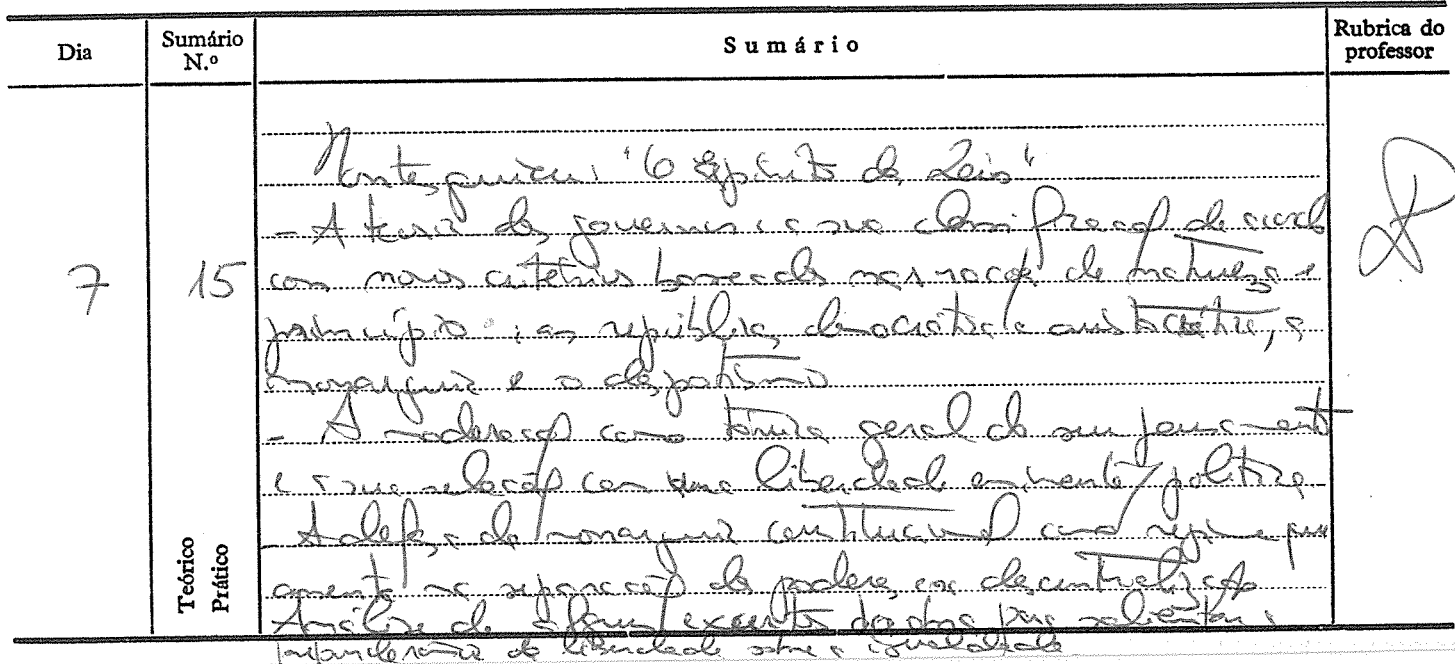 Dia
Sumário N.º
Sumário
Rubrica do professor
7
15
Teórico
Prático
Montesquieu: "O Espírito das Leis"
- A teoria dos governos e a sua classificação de acordo
com novos critérios baseados nas noções de natureza e
princípio: as república democrática e aristocrática, a
monarquia e o despotismo
- A moderação como tónica geral do seu pensamento
e a sua relação com uma liberdade eminente/ política
A defesa da monarquia constitucional como regime que
assenta na separação de poderes e na descentralização
Análise de alguns excertos da obra que salientam a
preponderância da liberdade sobre a igualdade